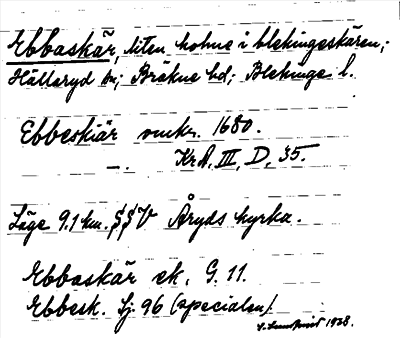 Ebbaskär, liten holme i blekingeskären;
Hällaryd sn; Bräkne hd; Blekinge l.
Ebbeskiär omkr. 1680.
—. KrA. III, D, 35.
Läge 9.1 km. SSV Åryds kyrka.
Ebbaskär ek. G. 11.
Ebbesk. Sj. 96 (specialen)
1938.